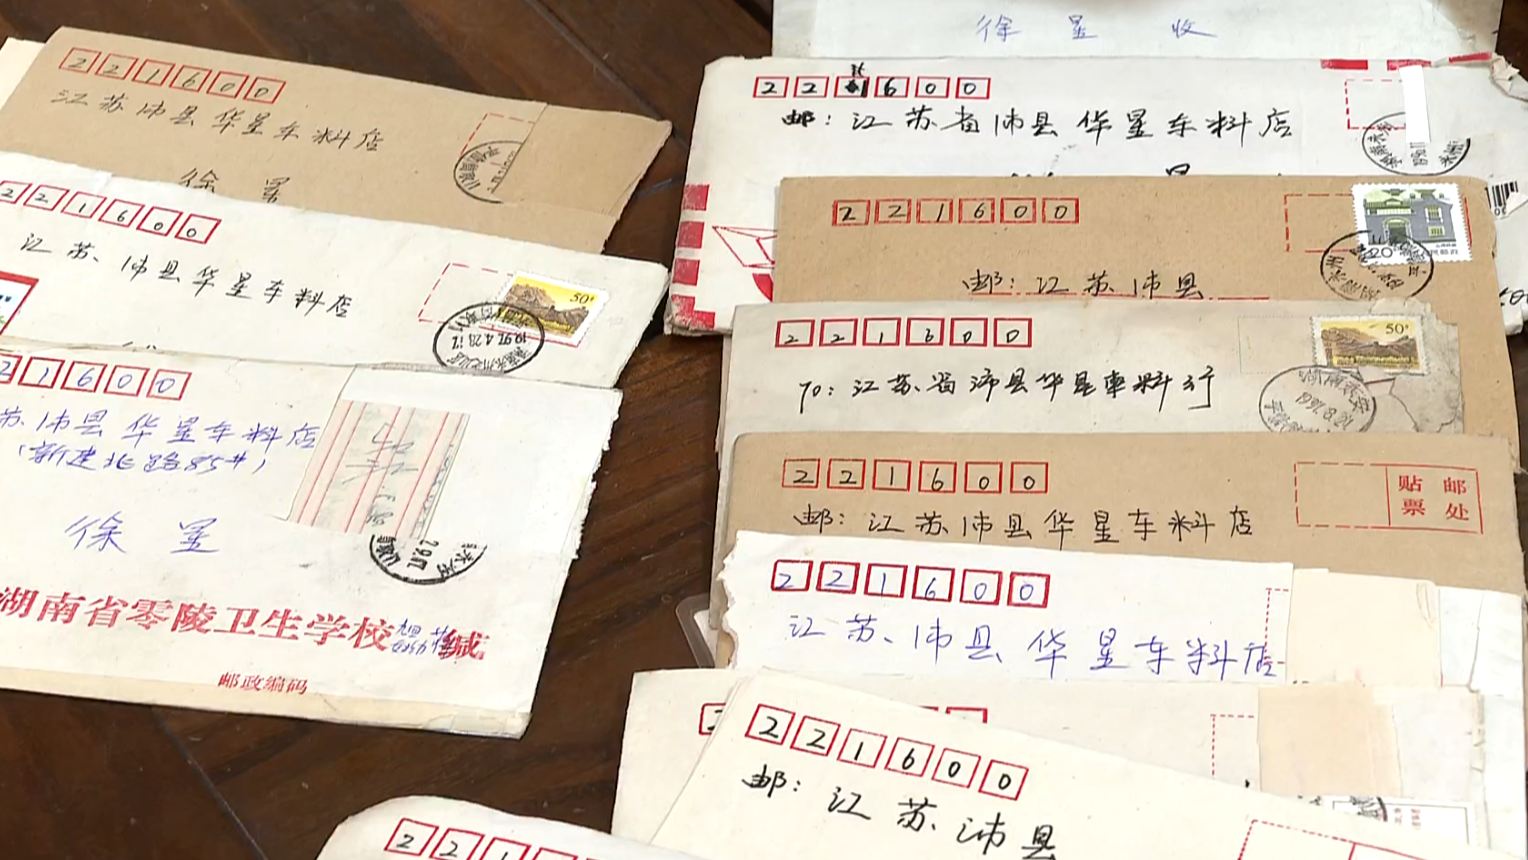 221600
江苏沛县华星车料店
徐 星
221600
江苏、沛县华星车料店
50
1997.4.28.17
21600
苏沛县华星车料店
(新建北路85#)
徐 星
湖南省零陵卫生学校 缄
邮政编码
徐 星 收
221600
邮：江苏省沛县华星车料店
221600
20
邮：江苏沛县
221600
50
TO：江苏省沛县华星车料行
湖南
1997.8.21
221600
贴 邮
票 处
邮：江苏沛县华星车料店
221600
江苏、沛县华星车料店
2
221600
邮：江苏、沛县
221